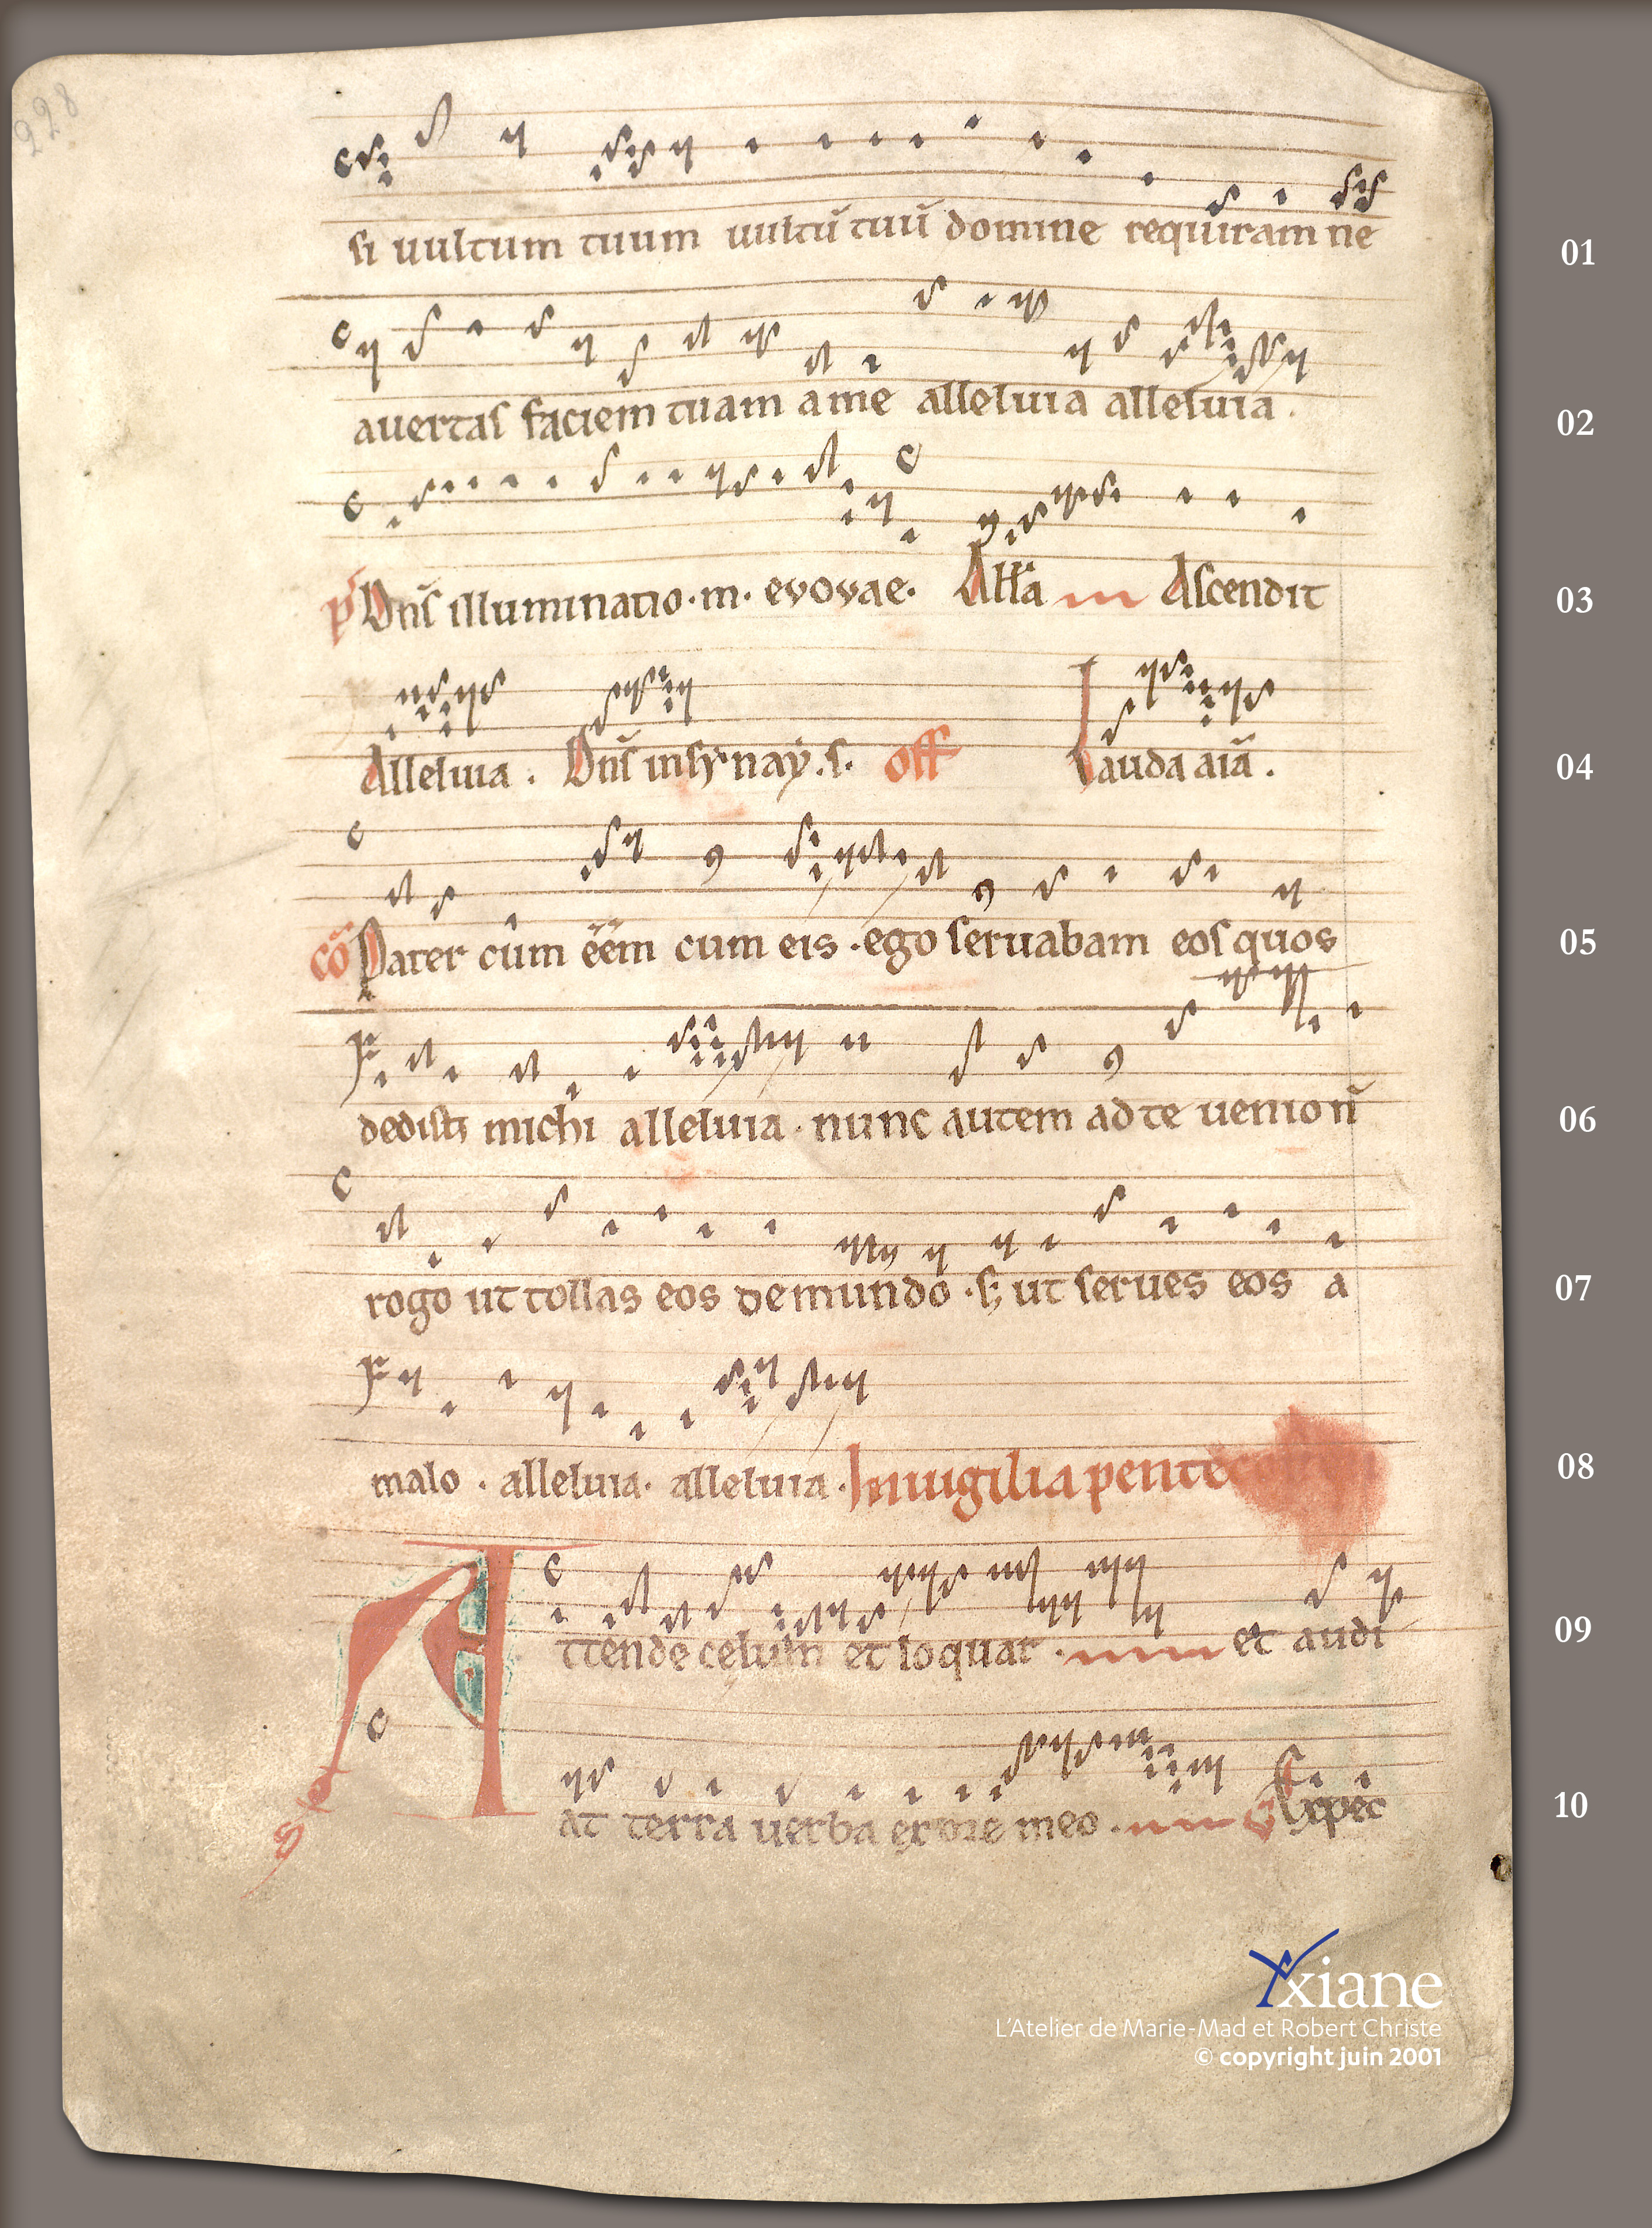 228
si uultum tuum uultū tuū domine requiram ne 01
auertas faciem tuam a me alleluia alleluia . 02
p̄ Dn̄s illuminatio · m · evovae · Alła Ascendit 03
Alleluia . Dn̄s in synaÿ . s . off Lauda aiā . 04
cō Pater cum ēēm cum eis · ego seruabam eos quos 05
dedisti michi alleluia · nunc autem ad te uenio n̄ 06
rogo ut tollas eos de mundo · s; ut serues eos a 07
malo . alleluia · alleluia · In uigilia pente 08
Attende celum et loquar · et audi 09
at terra uerba ex ore meo . Expec 10
Yxiane
L'Atelier de Marie-Mad et Robert Christe
© copyright juin 2001